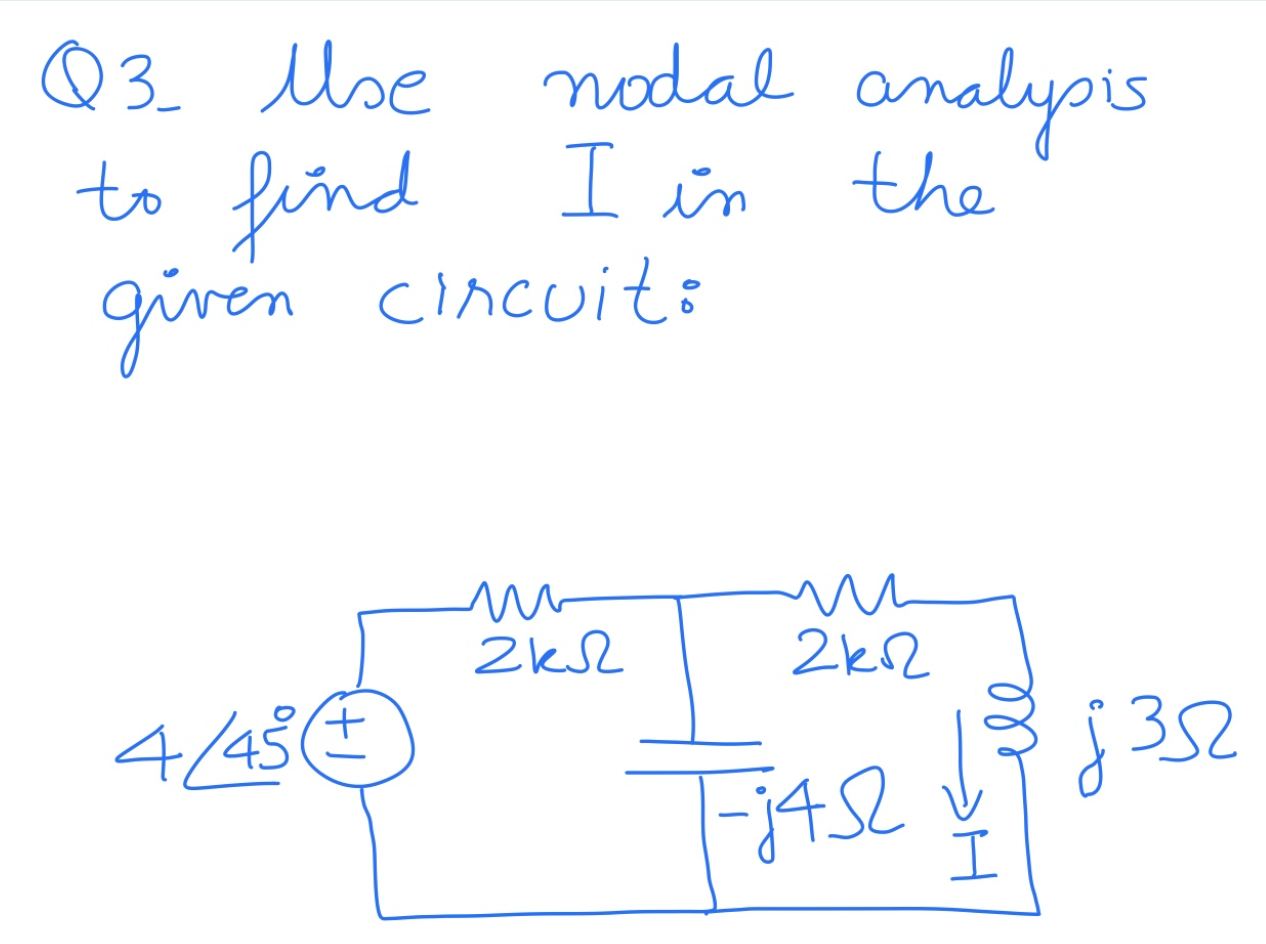 Q3_ Use nodal analysis
to find I in the
given circuit:
2kΩ 2kΩ
4/45° + − -j4Ω I j3Ω